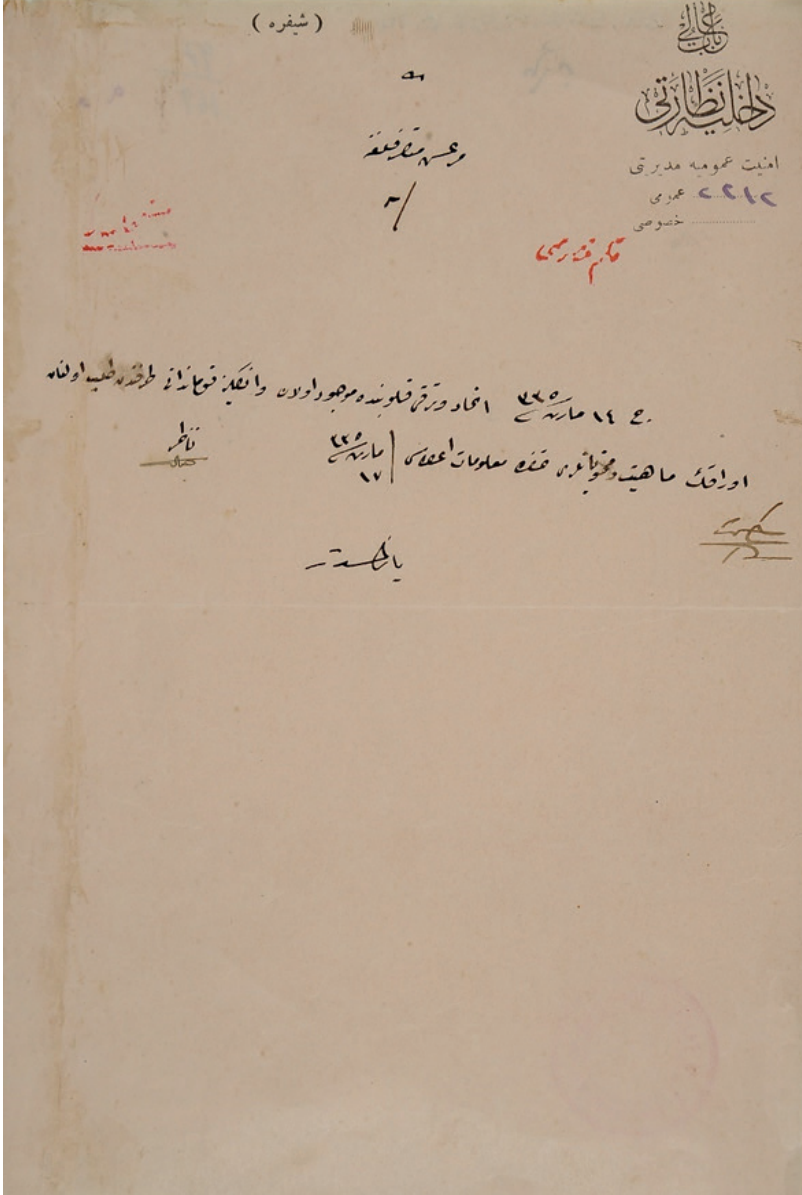 ( شيفره )
باب عالی
داخليه نظارتی
امنيت عموميه مديريتی
عمومی ٢٢١٢
خصوصی
مرعش متصرفلغنه
ج ١٤ مارت سنه ٣٣٥ اتحاد وترقی قلوبنده موجود اولان وانكليز قوماندانی طرفندن طلب اولنان
اوراقك ماهيت ومحتوياتلری حقنده معلومات اعطاسی
١٧ مارت سنه ٣٣٥
ناظر
يازلمشدر